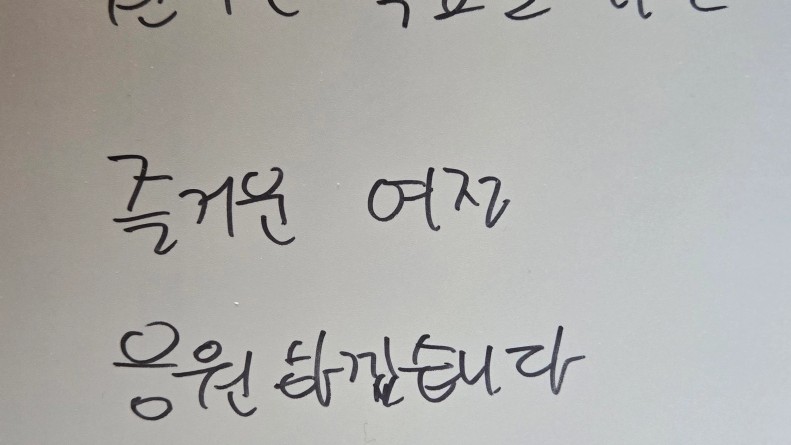 즐거운 여정
응원하겠습니다